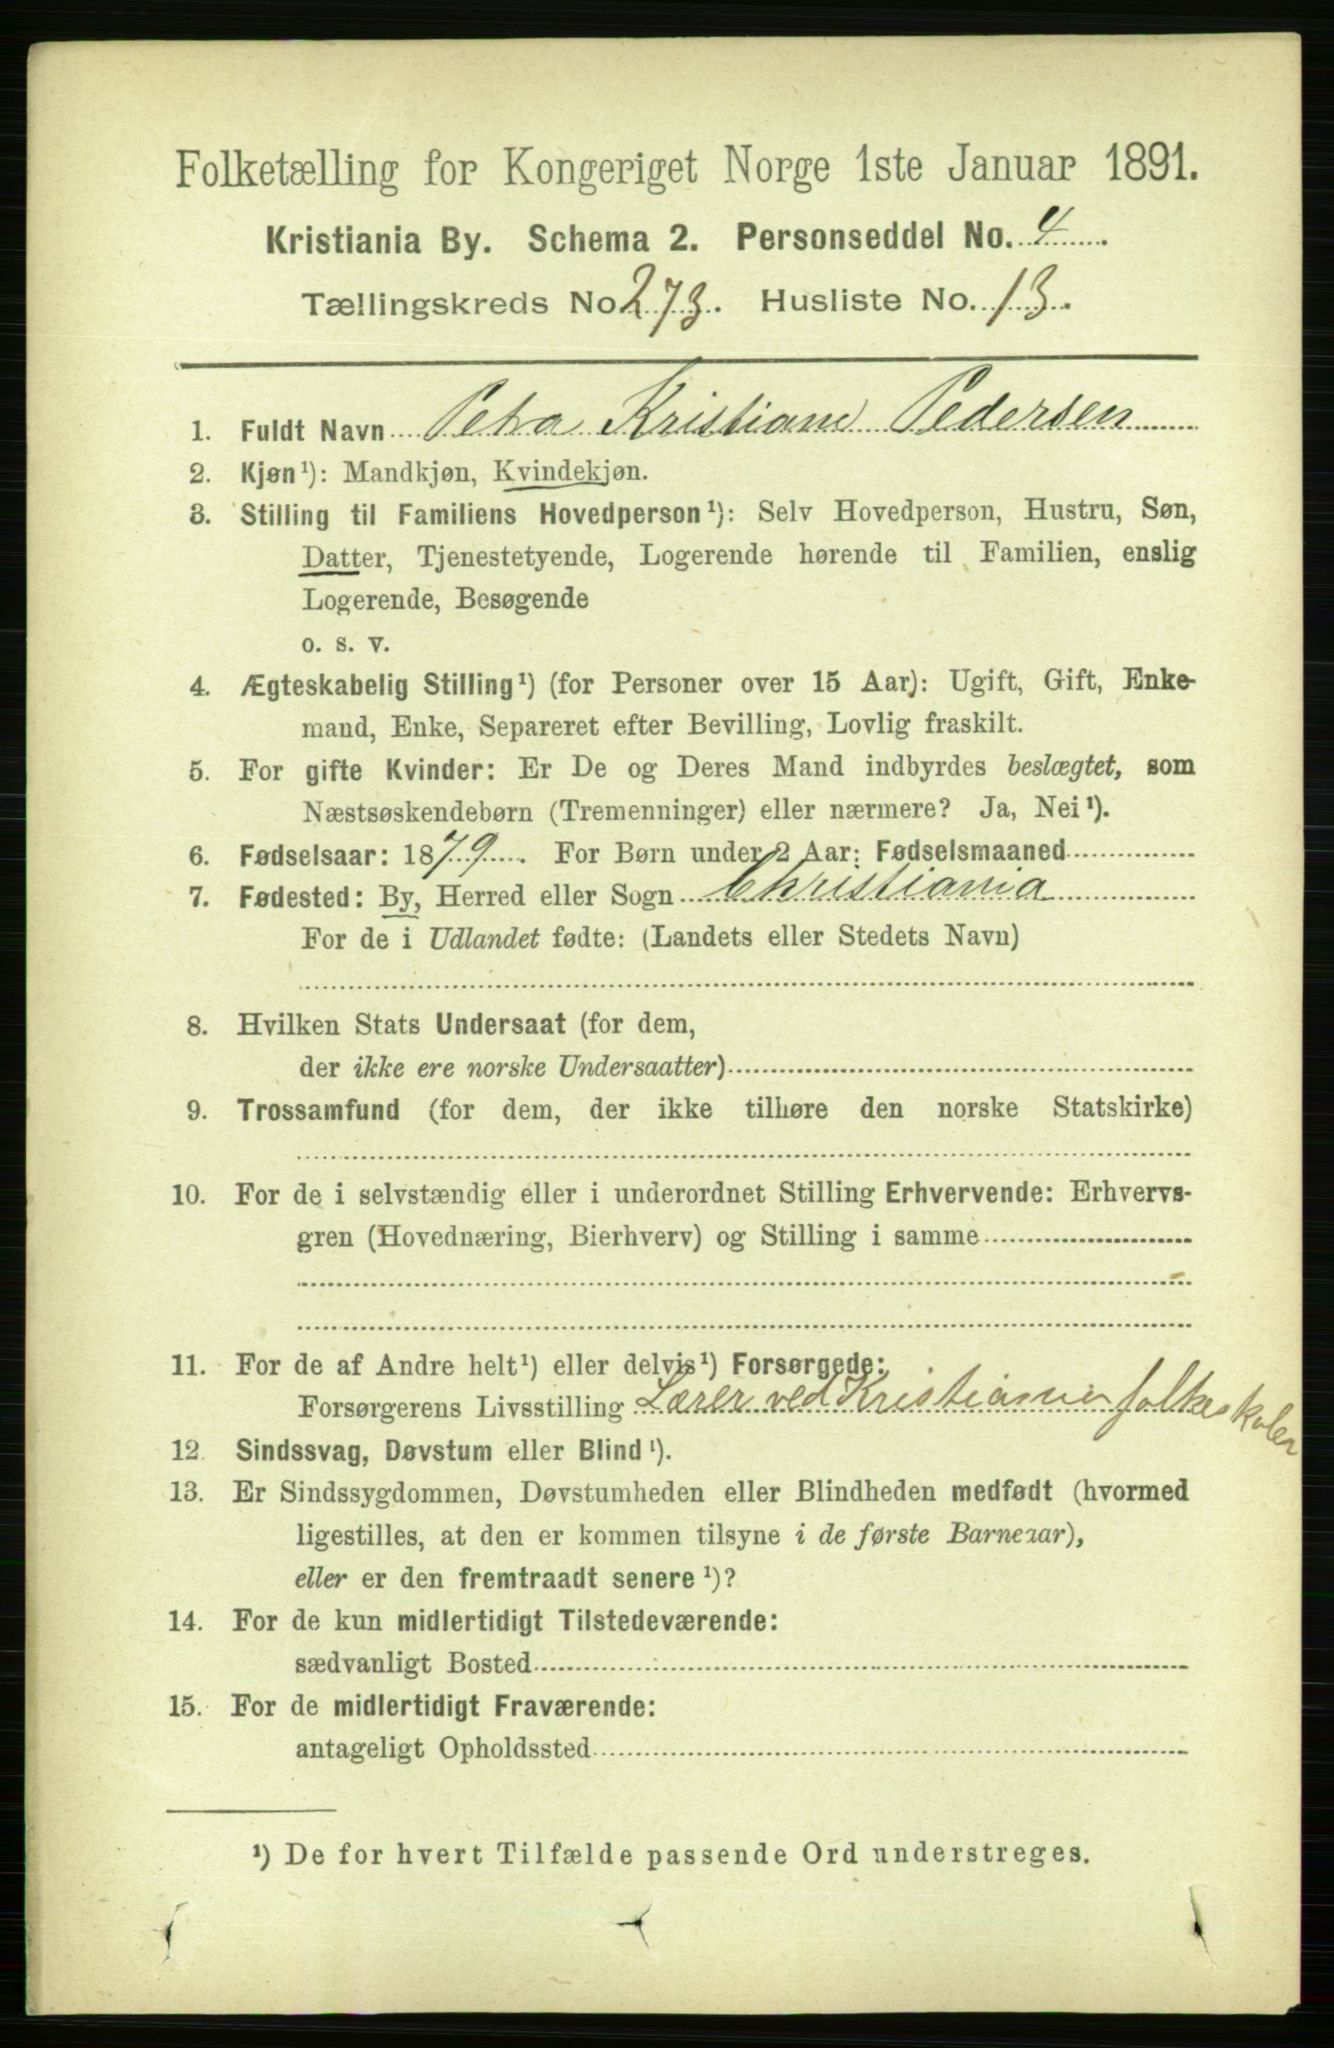 Folketælling for Kongeriget Norge 1ste Januar 1891.
Kristiania By. Schema 2. Personseddel No. 4
Tællingskreds No 273. Husliste No. 13.
1. Fuldt Navn Petra Kristiane Pedersen
2. Kjøn¹): Mandkjøn, Kvindekjøn.
3. Stilling til Familiens Hovedperson¹): Selv Hovedperson, Hustru, Søn,
Datter, Tjenestetyende, Logerende hørende til Familien, enslig
Logerende, Besøgende
o. s. v.
4. Ægteskabelig Stilling¹) (for Personer over 15 Aar): Ugift, Gift, Enke-
mand, Enke, Separeret efter Bevilling, Lovlig fraskilt.
5. For gifte Kvinder: Er De og Deres Mand indbyrdes beslægtet, som
Næstsøskendebørn (Tremenninger) eller nærmere? Ja, Nei¹).
6. Fødselsaar: 1879. For Børn under 2 Aar: Fødselsmaaned
7. Fødested: By, Herred eller Sogn Christiania
For de i Udlandet fødte: (Landets eller Stedets Navn)
8. Hvilken Stats Undersaat (for dem,
der ikke ere norske Undersaatter)
9. Trossamfund (for dem, der ikke tilhøre den norske Statskirke)
10. For de i selvstændig eller i underordnet Stilling Erhvervende: Erhvervs-
gren (Hovednæring, Bierhverv) og Stilling i samme
11. For de af Andre helt¹) eller delvis¹) Forsørgede:
Forsørgerens Livsstilling Lærer ved Kristiania folkeskoler
12. Sindssvag, Døvstum eller Blind¹).
13. Er Sindssygdommen, Døvstumheden eller Blindheden medfødt (hvormed
ligestilles, at den er kommen tilsyne i de første Barneaar),
eller er den fremtraadt senere¹)?
14. For de kun midlertidigt Tilstedeværende:
sædvanligt Bosted
15. For de midlertidigt Fraværende:
antageligt Opholdssted
¹) De for hvert Tilfælde passende Ord understreges.